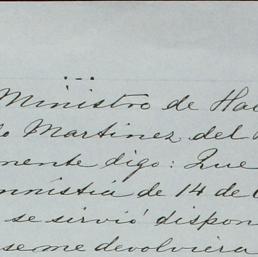 Ministro de Ha
Martinez del
mente digo: Que
mnistía de 14 de
se sirvió dispon
se me devolviera